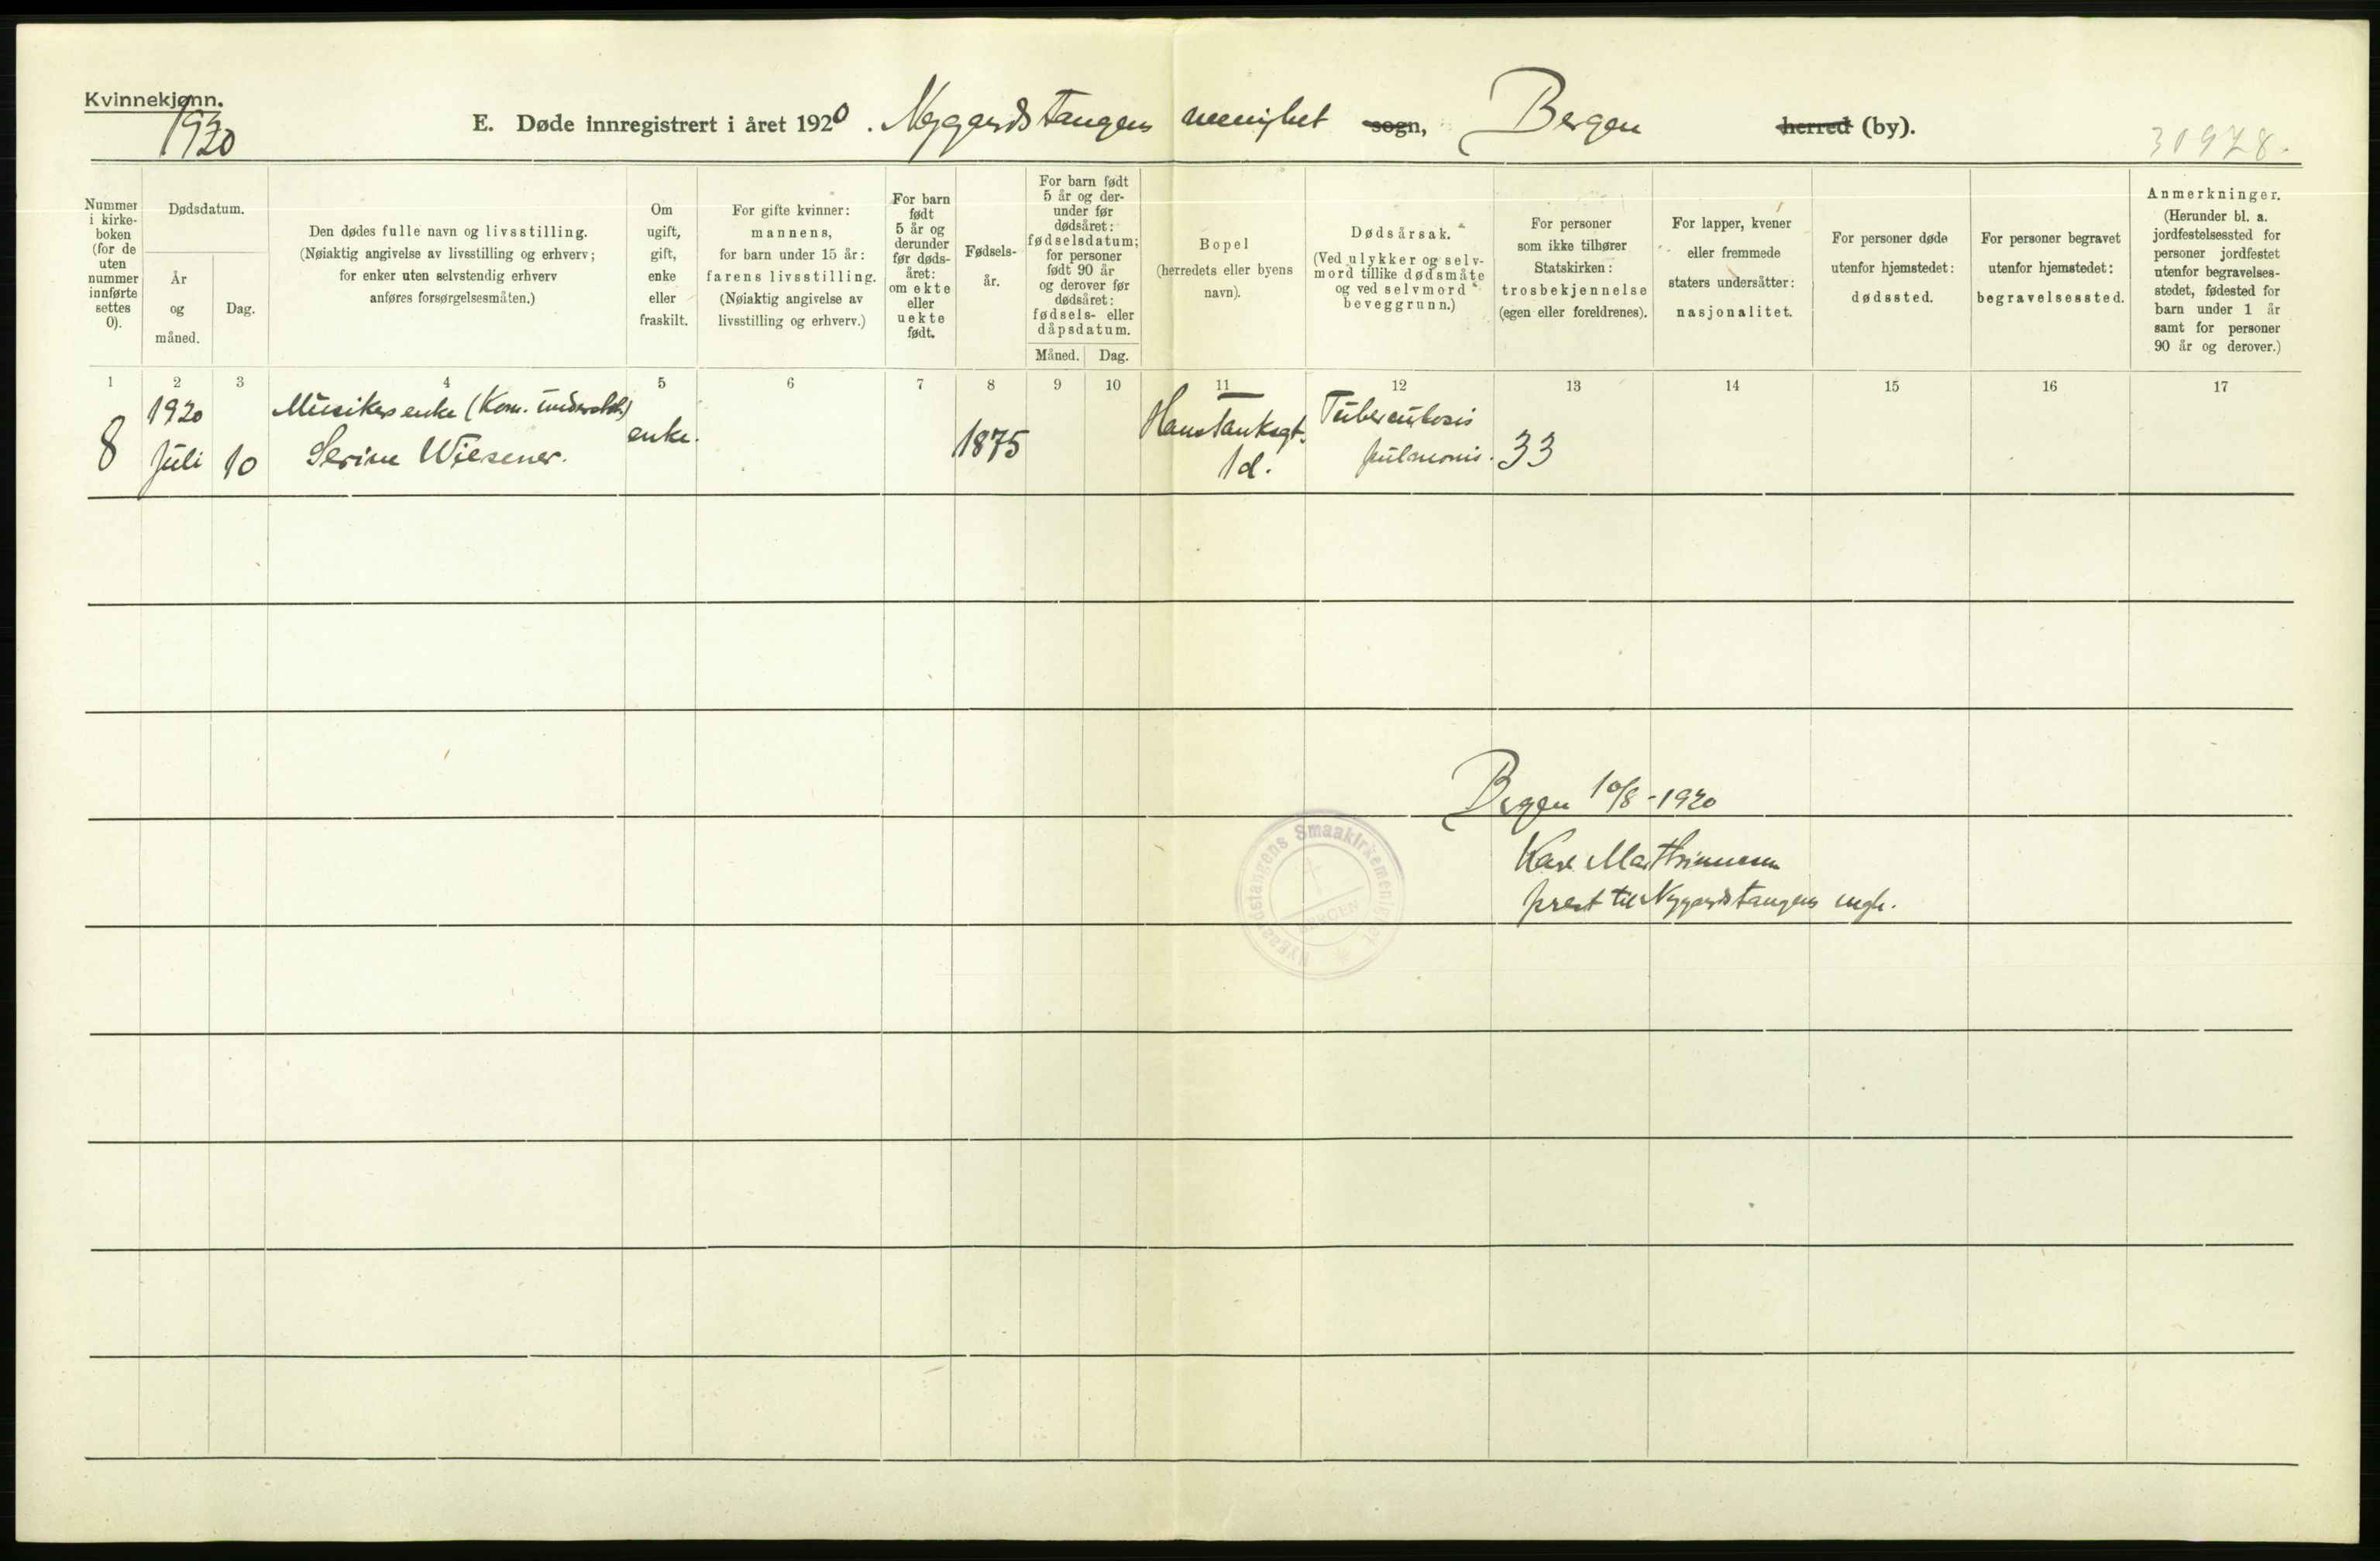 Kvinnekjønn.
1920
E. Døde innregistrert i året 1920. Nygaardstangens menighet sogn, Bergen herred (by).
30978.
Nummer i kirke- boken (for de uten nummer innførte settes 0).
Dødsdatum.
År og måned.
Dag.
Den dødes fulle navn og livsstilling.
(Nøiaktig angivelse av livsstilling og erhverv;
for enker uten selvstendig erhverv
anføres forsørgelsesmåten.)
Om ugift, gift, enke eller fraskilt.
For gifte kvinner:
mannens,
for barn under 15 år:
farens livsstilling.
(Nøiaktig angivelse av
livsstilling og erhverv.)
For barn født 5 år og derunder før døds- året: om ekte eller uekte født.
Fødsels- år.
For barn født
5 år og der-
under før
dødsåret:
fødselsdatum;
for personer
født 90 år
og derover før
dødsåret:
fødsels- eller
dåpsdatum.
Måned. Dag.
Bopel
(herredets eller byens
navn).
Dødsårsak.
(Ved ulykker og selv-
mord tillike dødsmåte
og ved selvmord
beveggrunn.)
For personer
som ikke tilhører
Statskirken:
trosbekjennelse
(egen eller foreldrenes).
For lapper, kvener
eller fremmede
staters undersåtter:
nasjonalitet.
For personer døde
utenfor hjemstedet:
dødssted.
For personer begravet
utenfor hjemstedet:
begravelsessted.
Anmerkninger.
(Herunder bl. a.
jordfestelsessted for
personer jordfestet
utenfor begravelses-
stedet, fødested for
barn under 1 år
samt for personer
90 år og derover.)
1 2 3 4 5 6 7 8 9 10 11 12 13 14 15 16 17
8
1920
Juli
10
Musikers enke (Kom.
Serine Wiesener.
enke.
1875
Hans Tanksgt.
1d.
Tuberculosis
pulmonis.
33
Bergen 10/8-1920
Karl Marthinussen
prest til Nygaardstangens mgh.
Nygaardstangens Smaakirkemenighet
BERGEN